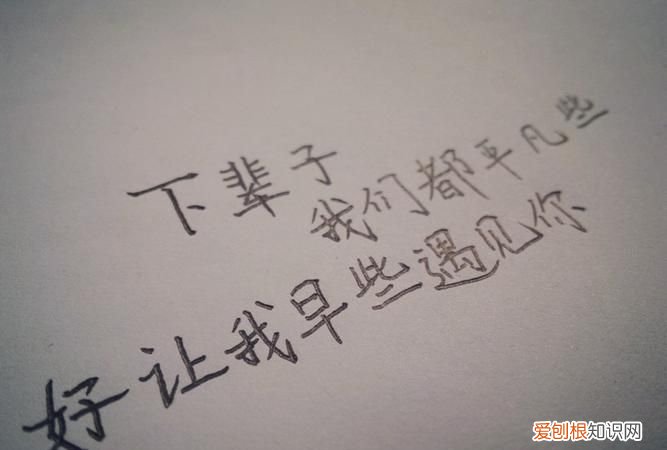 下辈子
我们都平凡些
好让我早些遇见你
爱刨根知识网